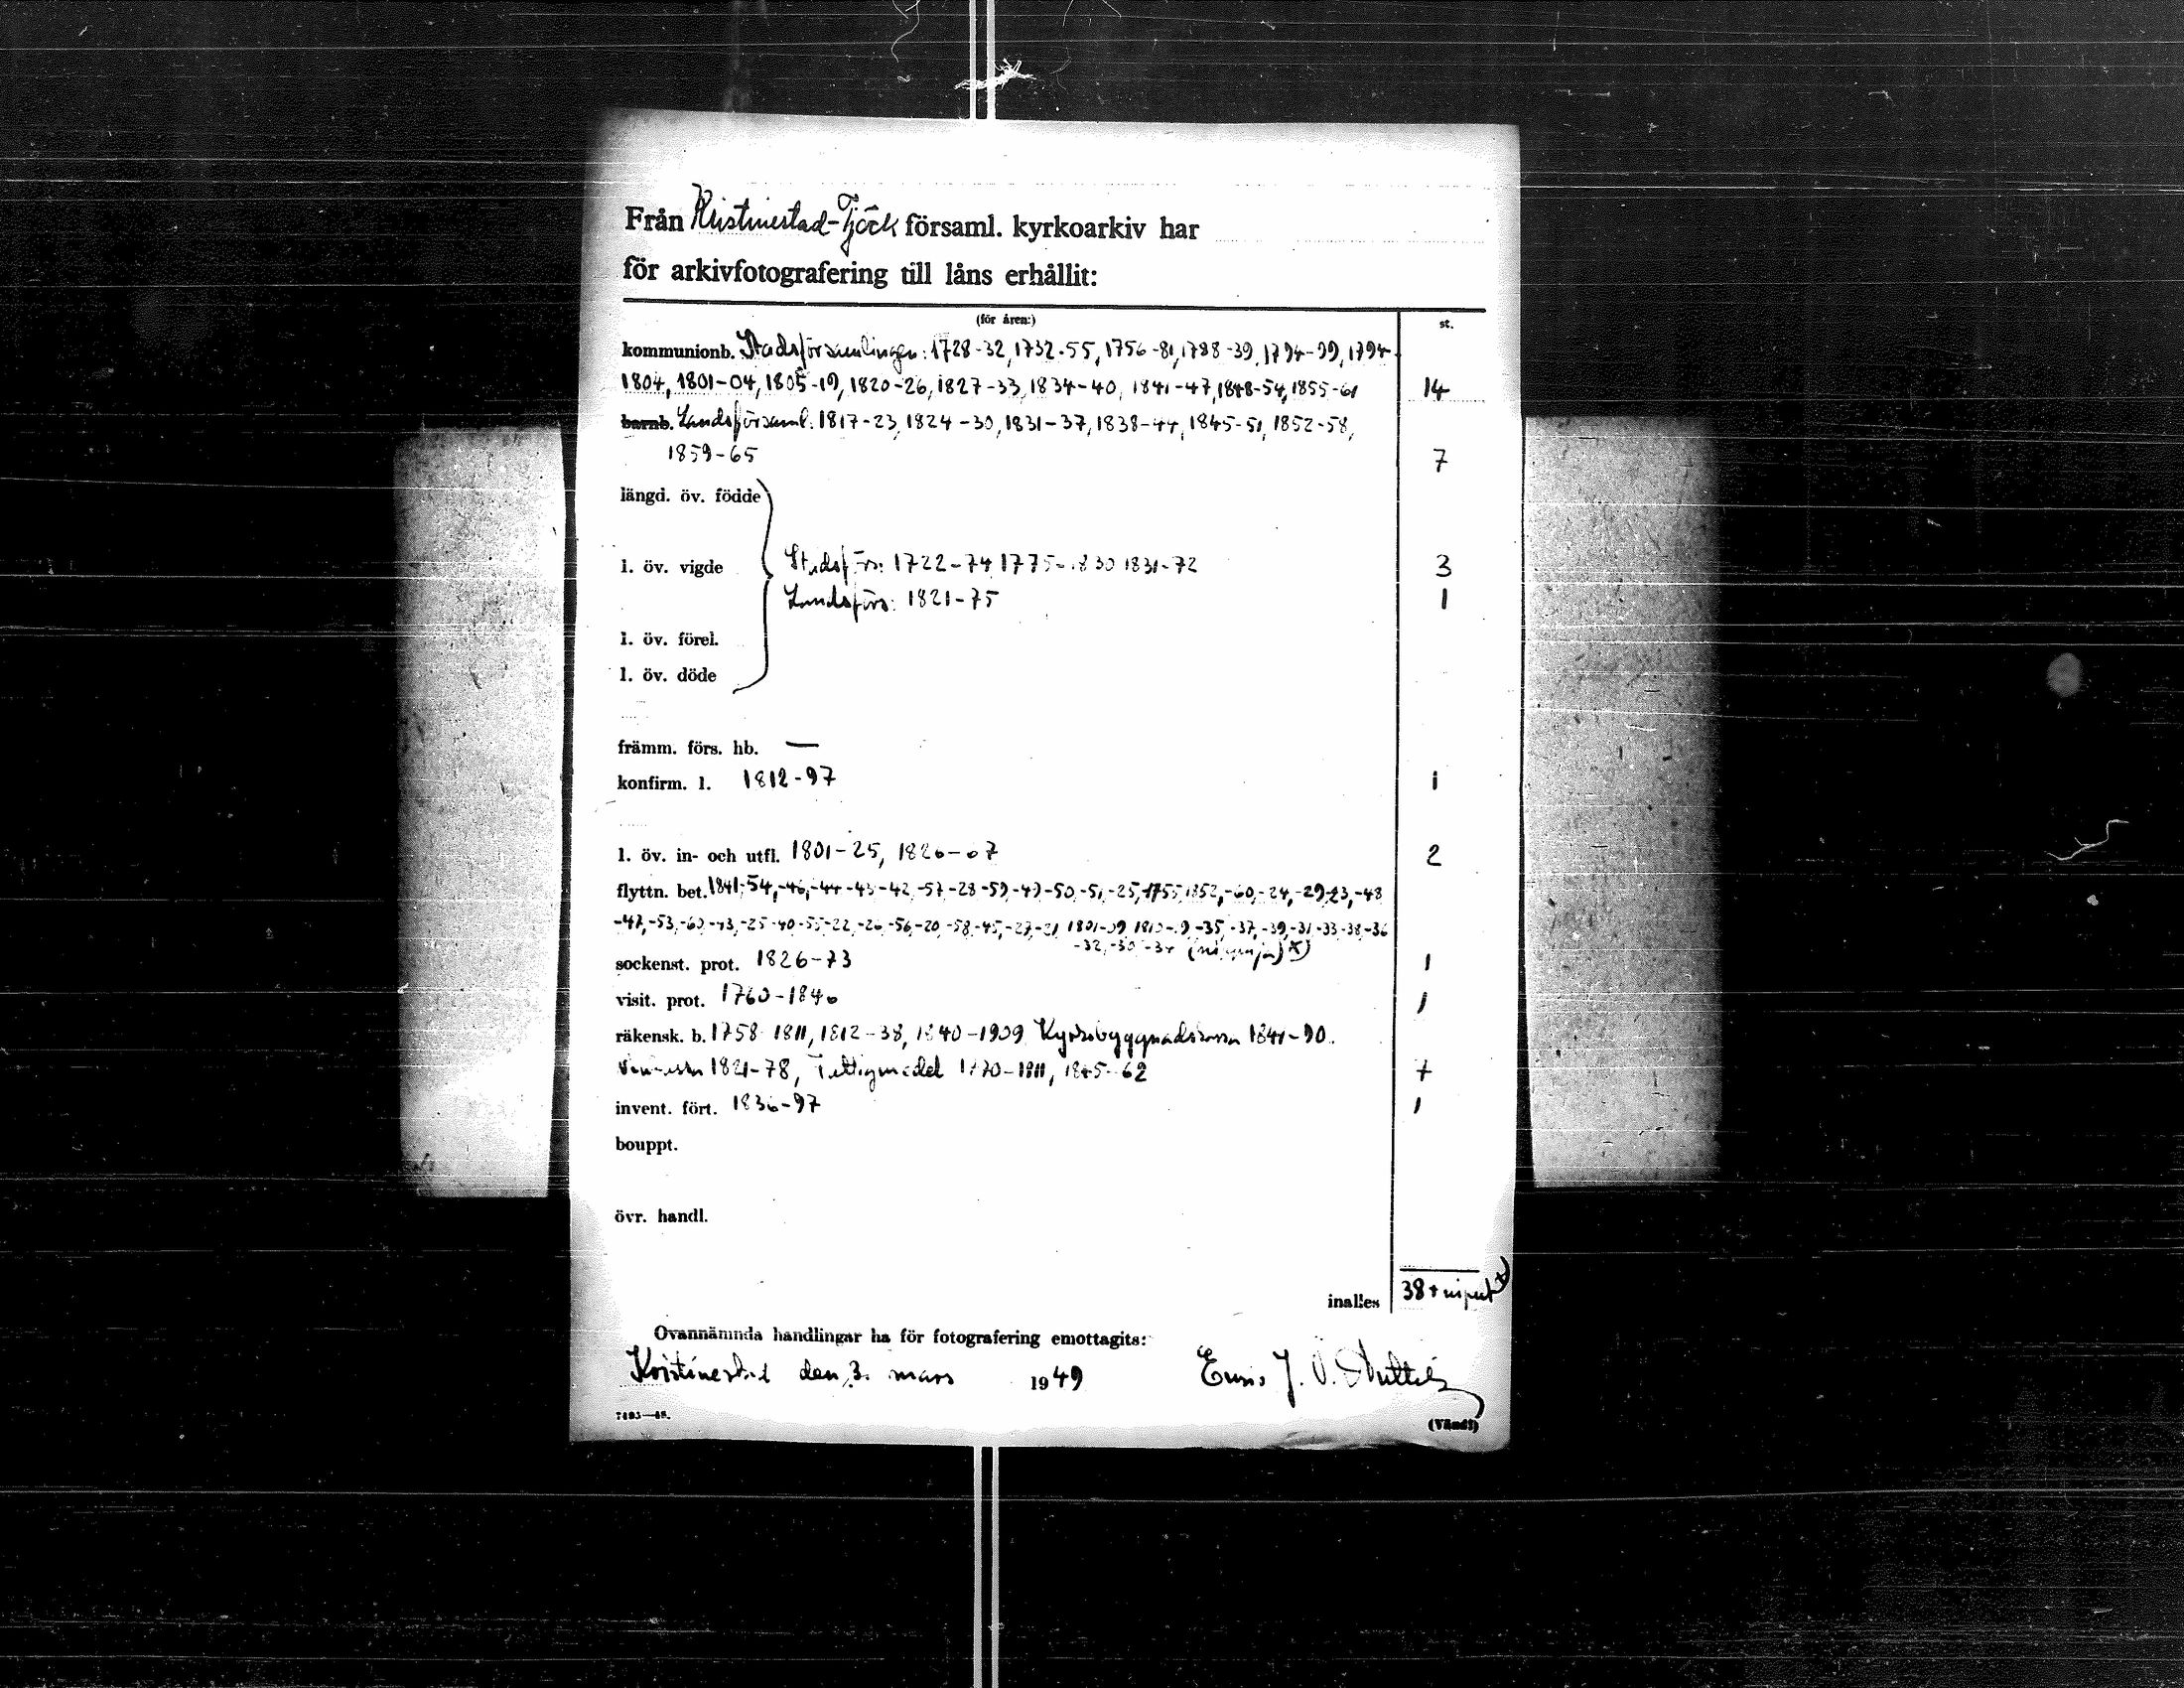 Från Kristinestad-Tjöck församl. kyrkoarkiv har
för arkivfotografering till låns erhållit:
(för åren:) st.
kommunionb. Stadsförsamlingen: 1728-32, 1732-55, 1756-81, 1788-39, 1794-99, 1794-
1804, 1801-04, 1805-19, 1820-26, 1827-33, 1834-40, 1841-47, 1848-54, 1855-61 14
barnb. Landsförsaml: 1817-23, 1824-30, 1831-37, 1838-44, 1845-51, 1852-58,
1859-65 7
längd. öv. födde
l. öv. vigde Stadsförs: 1722-74 1775-1830 1831-72 3
Landsförs: 1821-75 1
l. öv. förel.
l. öv. döde
främm. förs. hb. —
konfirm. l. 1812-97 1
l. öv. in- och utfl. 1801-25, 1826-67 2
flyttn. bet. 1841,-54,-46,-44-43-42,-57,-28-59,-49,-50,-51,-25,-1755,1852,-60,-24,-29,-23,-48
-47,-53,-60,-43,-25-40,-55-22,-26,-56,-20,-58,-45,-27,-21, 1801-09 -35,-37,-39,-31,-33,-38,-36
-32,-30,-34
sockenst. prot. 1826-73 1
visit. prot. 1760-1840 1
räkensk. b. 1758-1811, 1812-38, 1840-1909 Kyrkobyggnadskassa 1841-90.
1821-78, Fattigmedel 1770-1811, 1845-62 7
invent. fört. 1836-97 1
bouppt.
övr. handl.
inalles 38 +
Ovannämnda handlingar ha för fotografering emottagits:
Kristinestad den 3. mars 1949 J. O.
7493—48. (Vänd!)